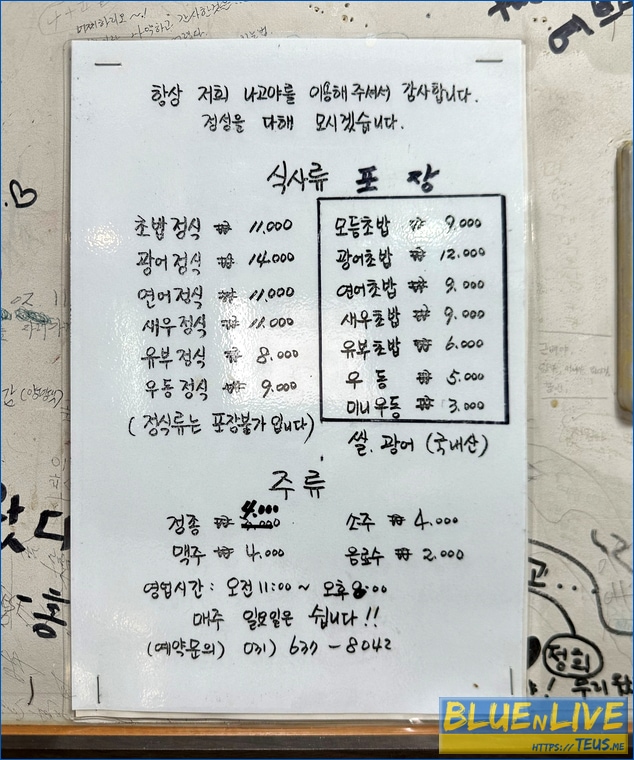 항상 저희 나고야를 이용해 주셔서 감사합니다.
정성을 다해 모시겠습니다.
식사류 포장
초밥정식 ₩ 11.000
광어정식 ₩ 14.000
연어정식 ₩ 11.000
새우정식 ₩ 11.000
유부정식 ₩ 8.000
우동정식 ₩ 9.000
(정식류는 포장불가입니다)
모듬초밥 ₩ 9.000
광어초밥 ₩ 12.000
연어초밥 ₩ 9.000
새우초밥 ₩ 9.000
유부초밥 ₩ 6.000
우동 ₩ 5.000
미니우동 ₩ 3.000
쌀. 광어 (국내산)
주류
정종 ₩ 4.000
소주 ₩ 4.000
맥주 ₩ 4.000
음료수 ₩ 2.000
영업시간 : 오전 11:00 ~ 오후 8:00
매주 일요일은 쉽니다!!
(예약문의) 031) 637-8042
정희
BLUEnLIVE
HTTPS://TEUS.ME